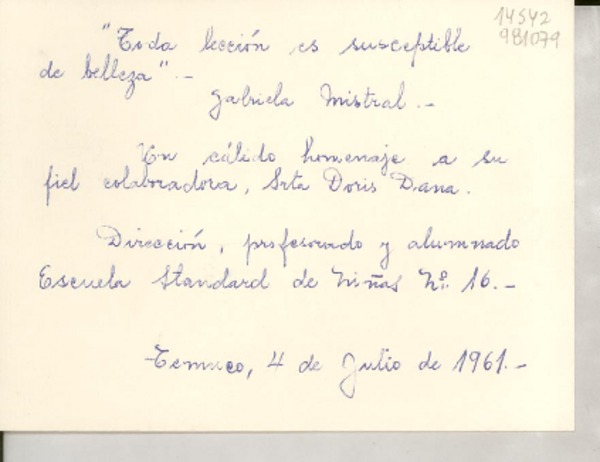 14542
981079
"Toda lección es susceptible
de belleza".-
Gabriela Mistral.-
Un cálido homenaje a su
fiel colaboradora, Srta Doris Dana.
Dirección, profesorado y alumnado
Escuela Standard de Niñas Nº 16.-
Temuco, 4 de Julio de 1961.-